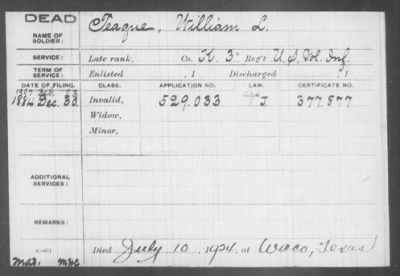 DEAD
NAME OF SOLDIER: Teague, William L.
SERVICE: Late rank, Co. K. 3d Reg't U.S. Vol. Inf.
TERM OF SERVICE: Enlisted , 1 Discharged , 1
DATE OF FILING. CLASS. APPLICATION NO. LAW. CERTIFICATE NO.
1884 Dec. 30 Invalid, 529.033 J 377.877
Widow,
Minor,
ADDITIONAL SERVICES:
REMARKS:
Died July 10, 1924, at Waco, Texas